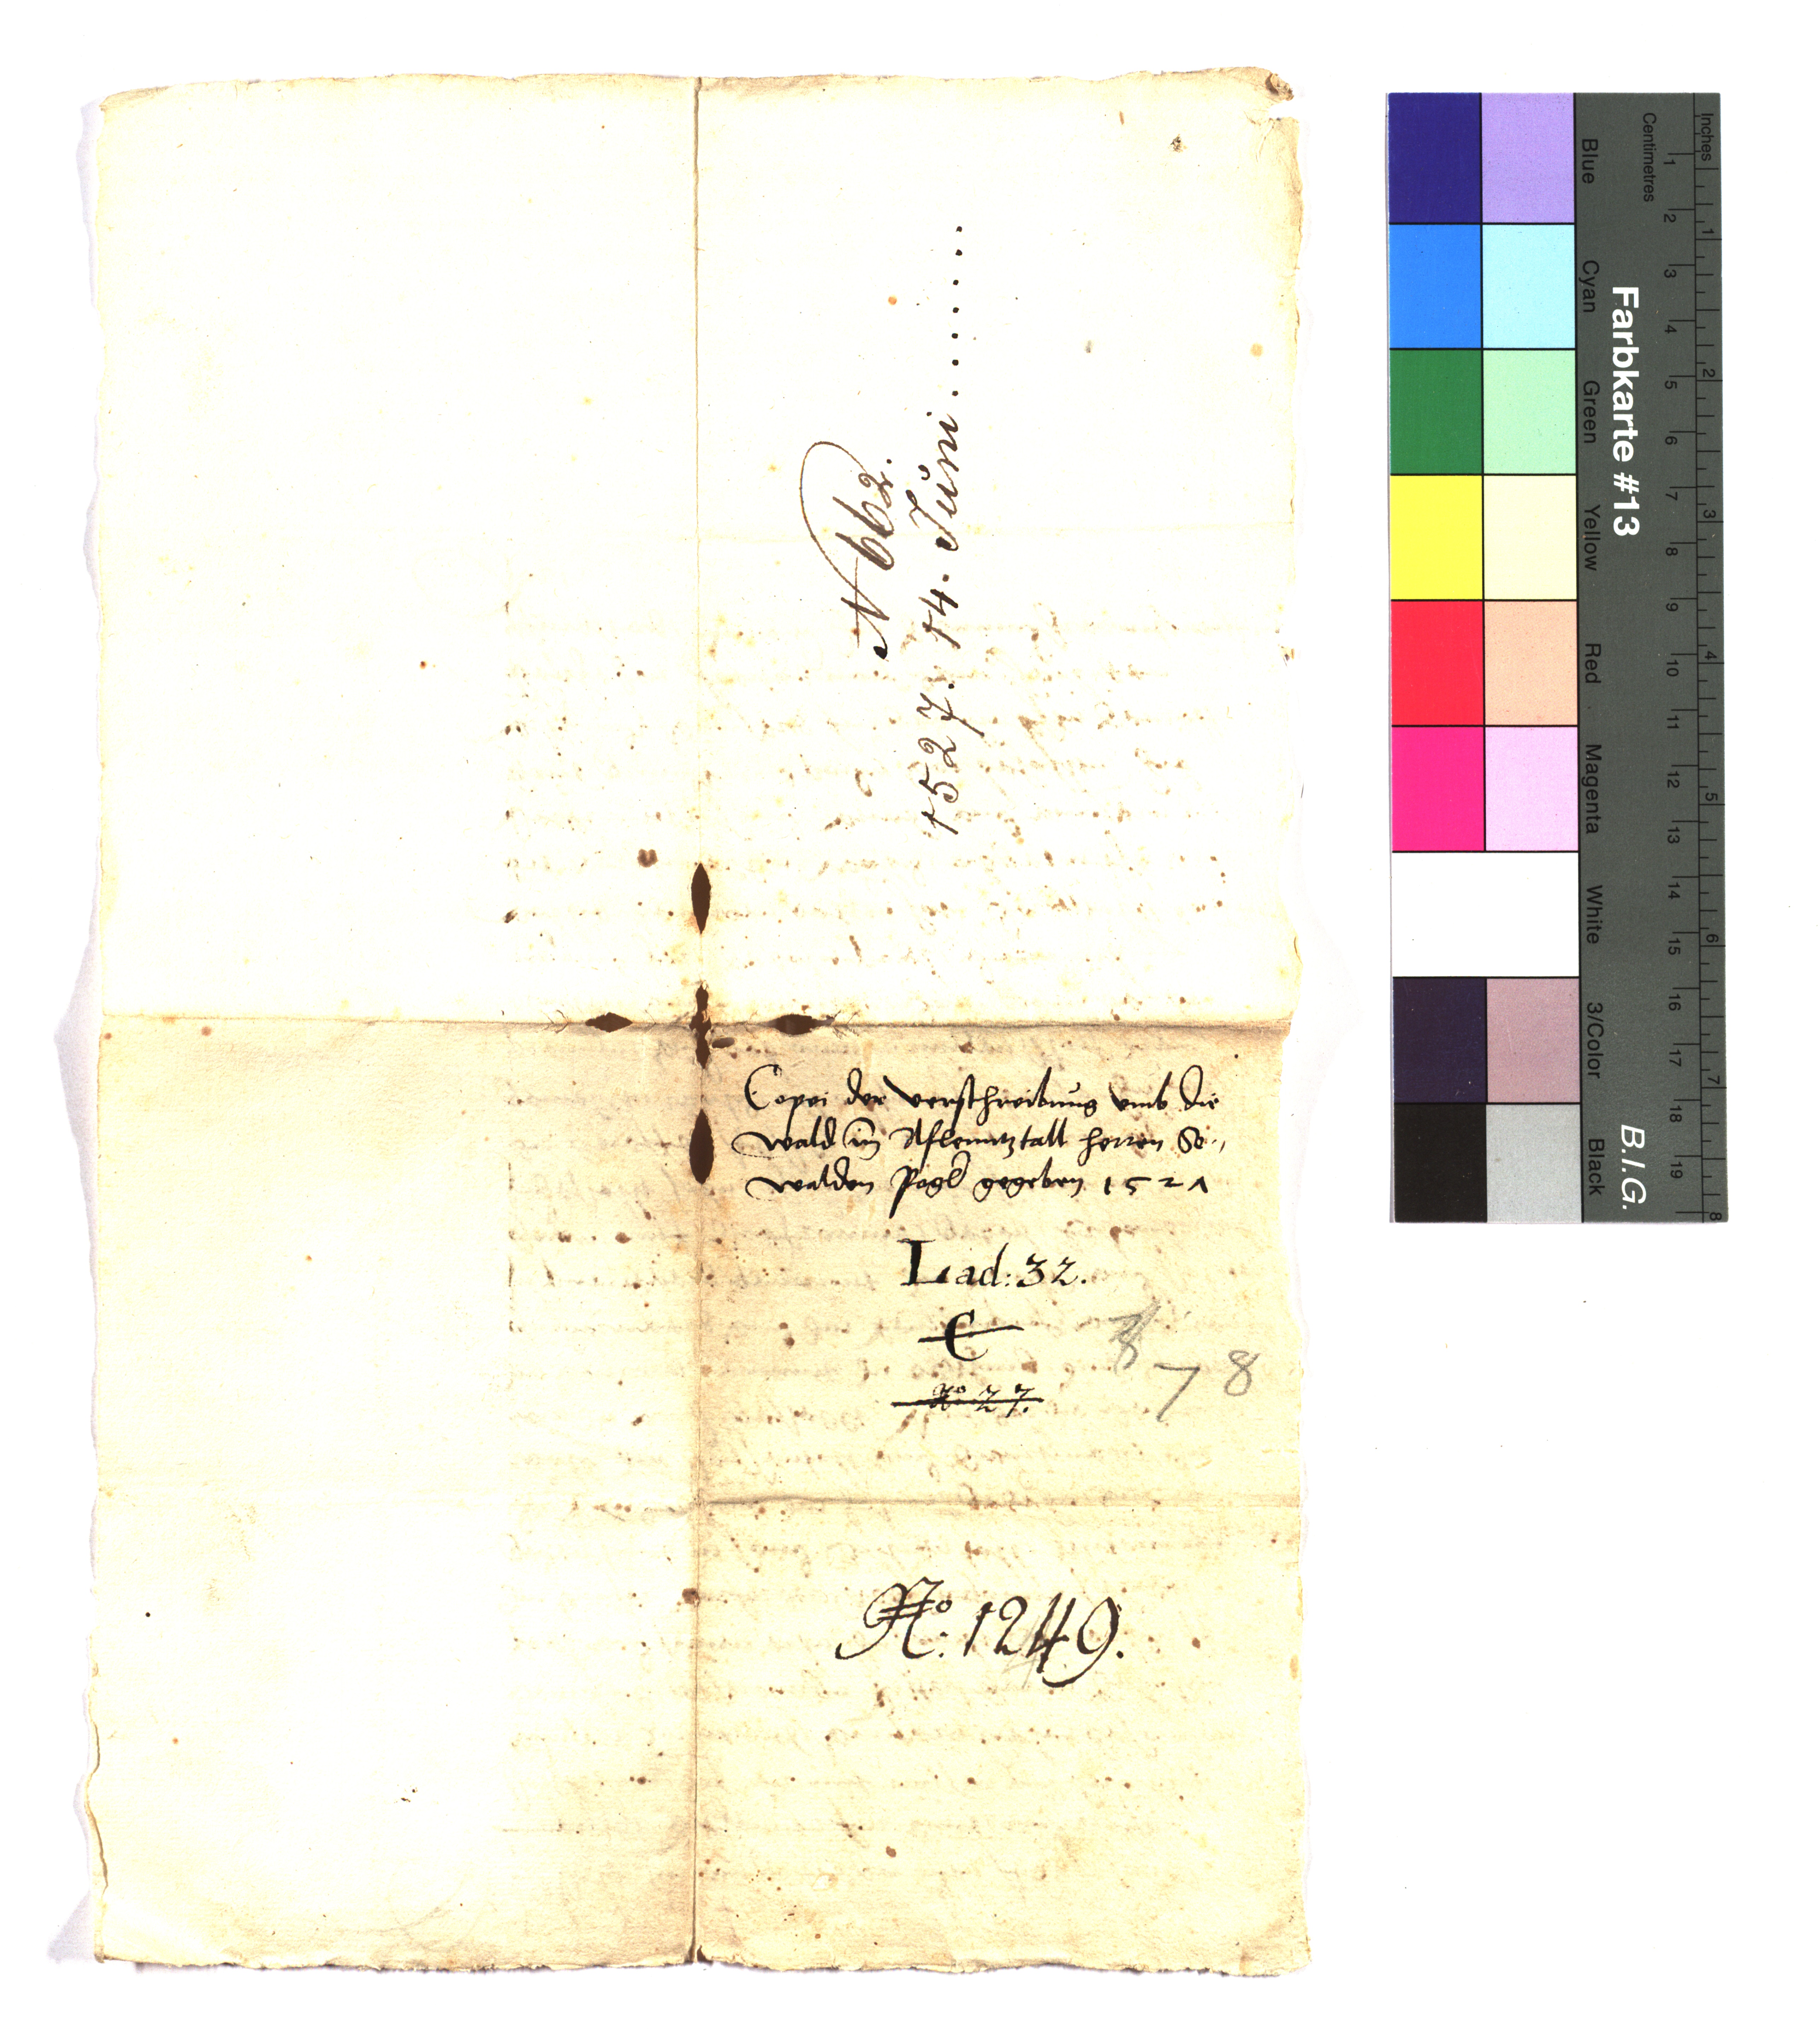 N 662.
1527. 14. Juni . . . . . . .
Copei der verschreibung vmb die
wald im Aflenntztall herren Se„
walden Pogl gegeben 1527
Lad: 32.
C
No 27.
8
7 8
No: 1249.
Farbkarte #13
B.I.G.
Inches
Centimetres
1 2 3 4 5 6 7 8 9 10 11 12 13 14 15 16 17 18 19
1 2 3 4 5 6 7 8
Blue
Cyan
Green
Yellow
Red
Magenta
White
3/Color
Black